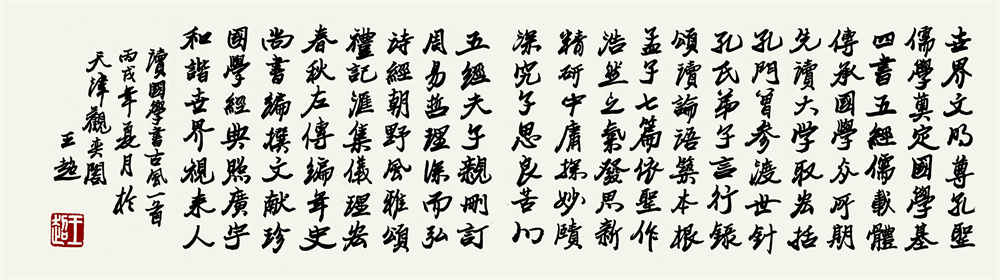 世界文明尊孔聖
儒學奠定國學基
四書五經儒載體
傳承國學眾所期
先讀大學取宏括
孔門曾參渡世針
孔氏弟子言行錄
頌讀論語築本根
孟子七篇依聖作
浩然之氣發思新
精研中庸探妙牘
深究子思良苦心
五經夫子親刪訂
周易哲理深而弘
詩經朝野風雅頌
禮記滙集儀理宏
春秋左傳編年史
尚書編撰文獻珍
國學經典照廣宇
和諧世界視來人
讀國學書古風一首
丙戌年夏月於
天津觀奕閣
王超
王超